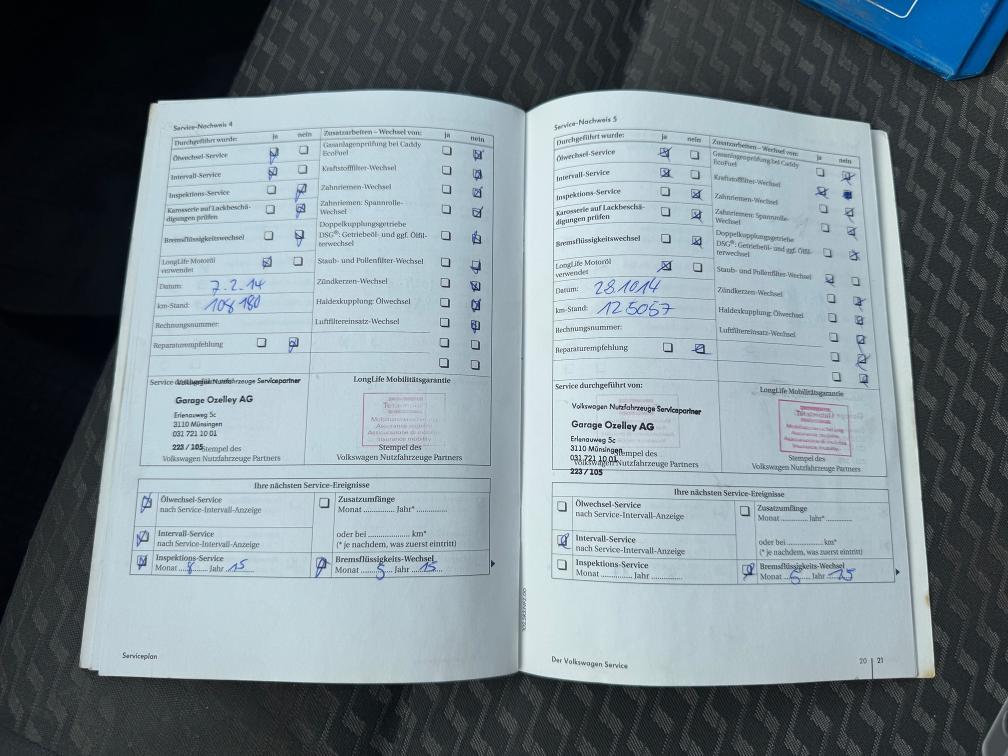 Service-Nachweis 4
Durchgeführt wurde: ja nein Zusatzarbeiten – Wechsel von: ja nein
Ölwechsel-Service
Gasanlagenprüfung bei Caddy
EcoFuel
Intervall-Service
Kraftstofffilter-Wechsel
Inspektions-Service
Zahnriemen-Wechsel
Karosserie auf Lackbeschä-
digungen prüfen
Zahnriemen: Spannrolle-
Wechsel
Bremsflüssigkeitswechsel
Doppelkupplungsgetriebe
DSG®: Getriebeöl- und ggf. Ölfil-
terwechsel
LongLife Motoröl
verwendet
Staub- und Pollenfilter-Wechsel
Datum: 7.2.14
Zündkerzen-Wechsel
km-Stand: 108 180
Haldexkupplung: Ölwechsel
Rechnungsnummer:
Luftfiltereinsatz-Wechsel
Reparaturempfehlung
Service
Volkswagen Nutzfahrzeuge Servicepartner
Garage Ozelley AG
Erlenauweg 5c
3110 Münsingen
031 721 10 01
223 / 105
Stempel des
Volkswagen Nutzfahrzeuge Partners
LongLife Mobilitätsgarantie
Stempel des
Volkswagen Nutzfahrzeuge Partners
Ihre nächsten Service-Ereignisse
Ölwechsel-Service
nach Service-Intervall-Anzeige
Zusatzumfänge
Monat ............ Jahr* ............
Intervall-Service
nach Service-Intervall-Anzeige
oder bei ................ km*
(* je nachdem, was zuerst eintritt)
Inspektions-Service
Monat 8 Jahr 15
Bremsflüssigkeits-Wechsel
Monat 5 Jahr 15
Serviceplan
Service-Nachweis 5
Durchgeführt wurde: ja nein Zusatzarbeiten – Wechsel von: ja nein
Ölwechsel-Service
Gasanlagenprüfung bei Caddy
EcoFuel
Intervall-Service
Kraftstofffilter-Wechsel
Inspektions-Service
Zahnriemen-Wechsel
Karosserie auf Lackbeschä-
digungen prüfen
Zahnriemen: Spannrolle-
Wechsel
Bremsflüssigkeitswechsel
Doppelkupplungsgetriebe
DSG®: Getriebeöl- und ggf. Ölfil-
terwechsel
LongLife Motoröl
verwendet
Staub- und Pollenfilter-Wechsel
Datum: 28.10.14
Zündkerzen-Wechsel
km-Stand: 125057
Haldexkupplung: Ölwechsel
Rechnungsnummer:
Luftfiltereinsatz-Wechsel
Reparaturempfehlung
Service durchgeführt von:
Volkswagen Nutzfahrzeuge Servicepartner
Garage Ozelley AG
Erlenauweg 5c
3110 Münsingen
031 721 10 01
223 / 105
Stempel des
Volkswagen Nutzfahrzeuge Partners
LongLife Mobilitätsgarantie
Stempel des
Volkswagen Nutzfahrzeuge Partners
Ihre nächsten Service-Ereignisse
Ölwechsel-Service
nach Service-Intervall-Anzeige
Zusatzumfänge
Monat ............ Jahr* ............
Intervall-Service
nach Service-Intervall-Anzeige
oder bei ................ km*
(* je nachdem, was zuerst eintritt)
Inspektions-Service
Monat ............ Jahr ............
Bremsflüssigkeits-Wechsel
Monat 5 Jahr 15
Der Volkswagen Service
20 | 21